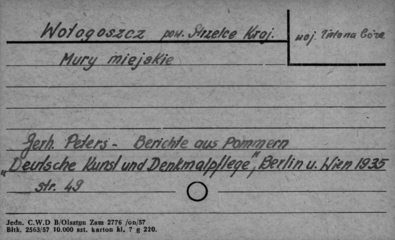 Wołogoszcz pow. Strzelce Kraj.
woj. Zielona Góra
Mury miejskie
Gerh. Peters - Berichte aus Pommern
"Deutsche Kunst und Denkmalpflege", Berlin u. Wien 1935
str. 49
Jedn. C.W.D B/Olsztyn Zam 2776 /on/57
Bltk. 2563/57 10.000 szt. karton kl. ? g 220.